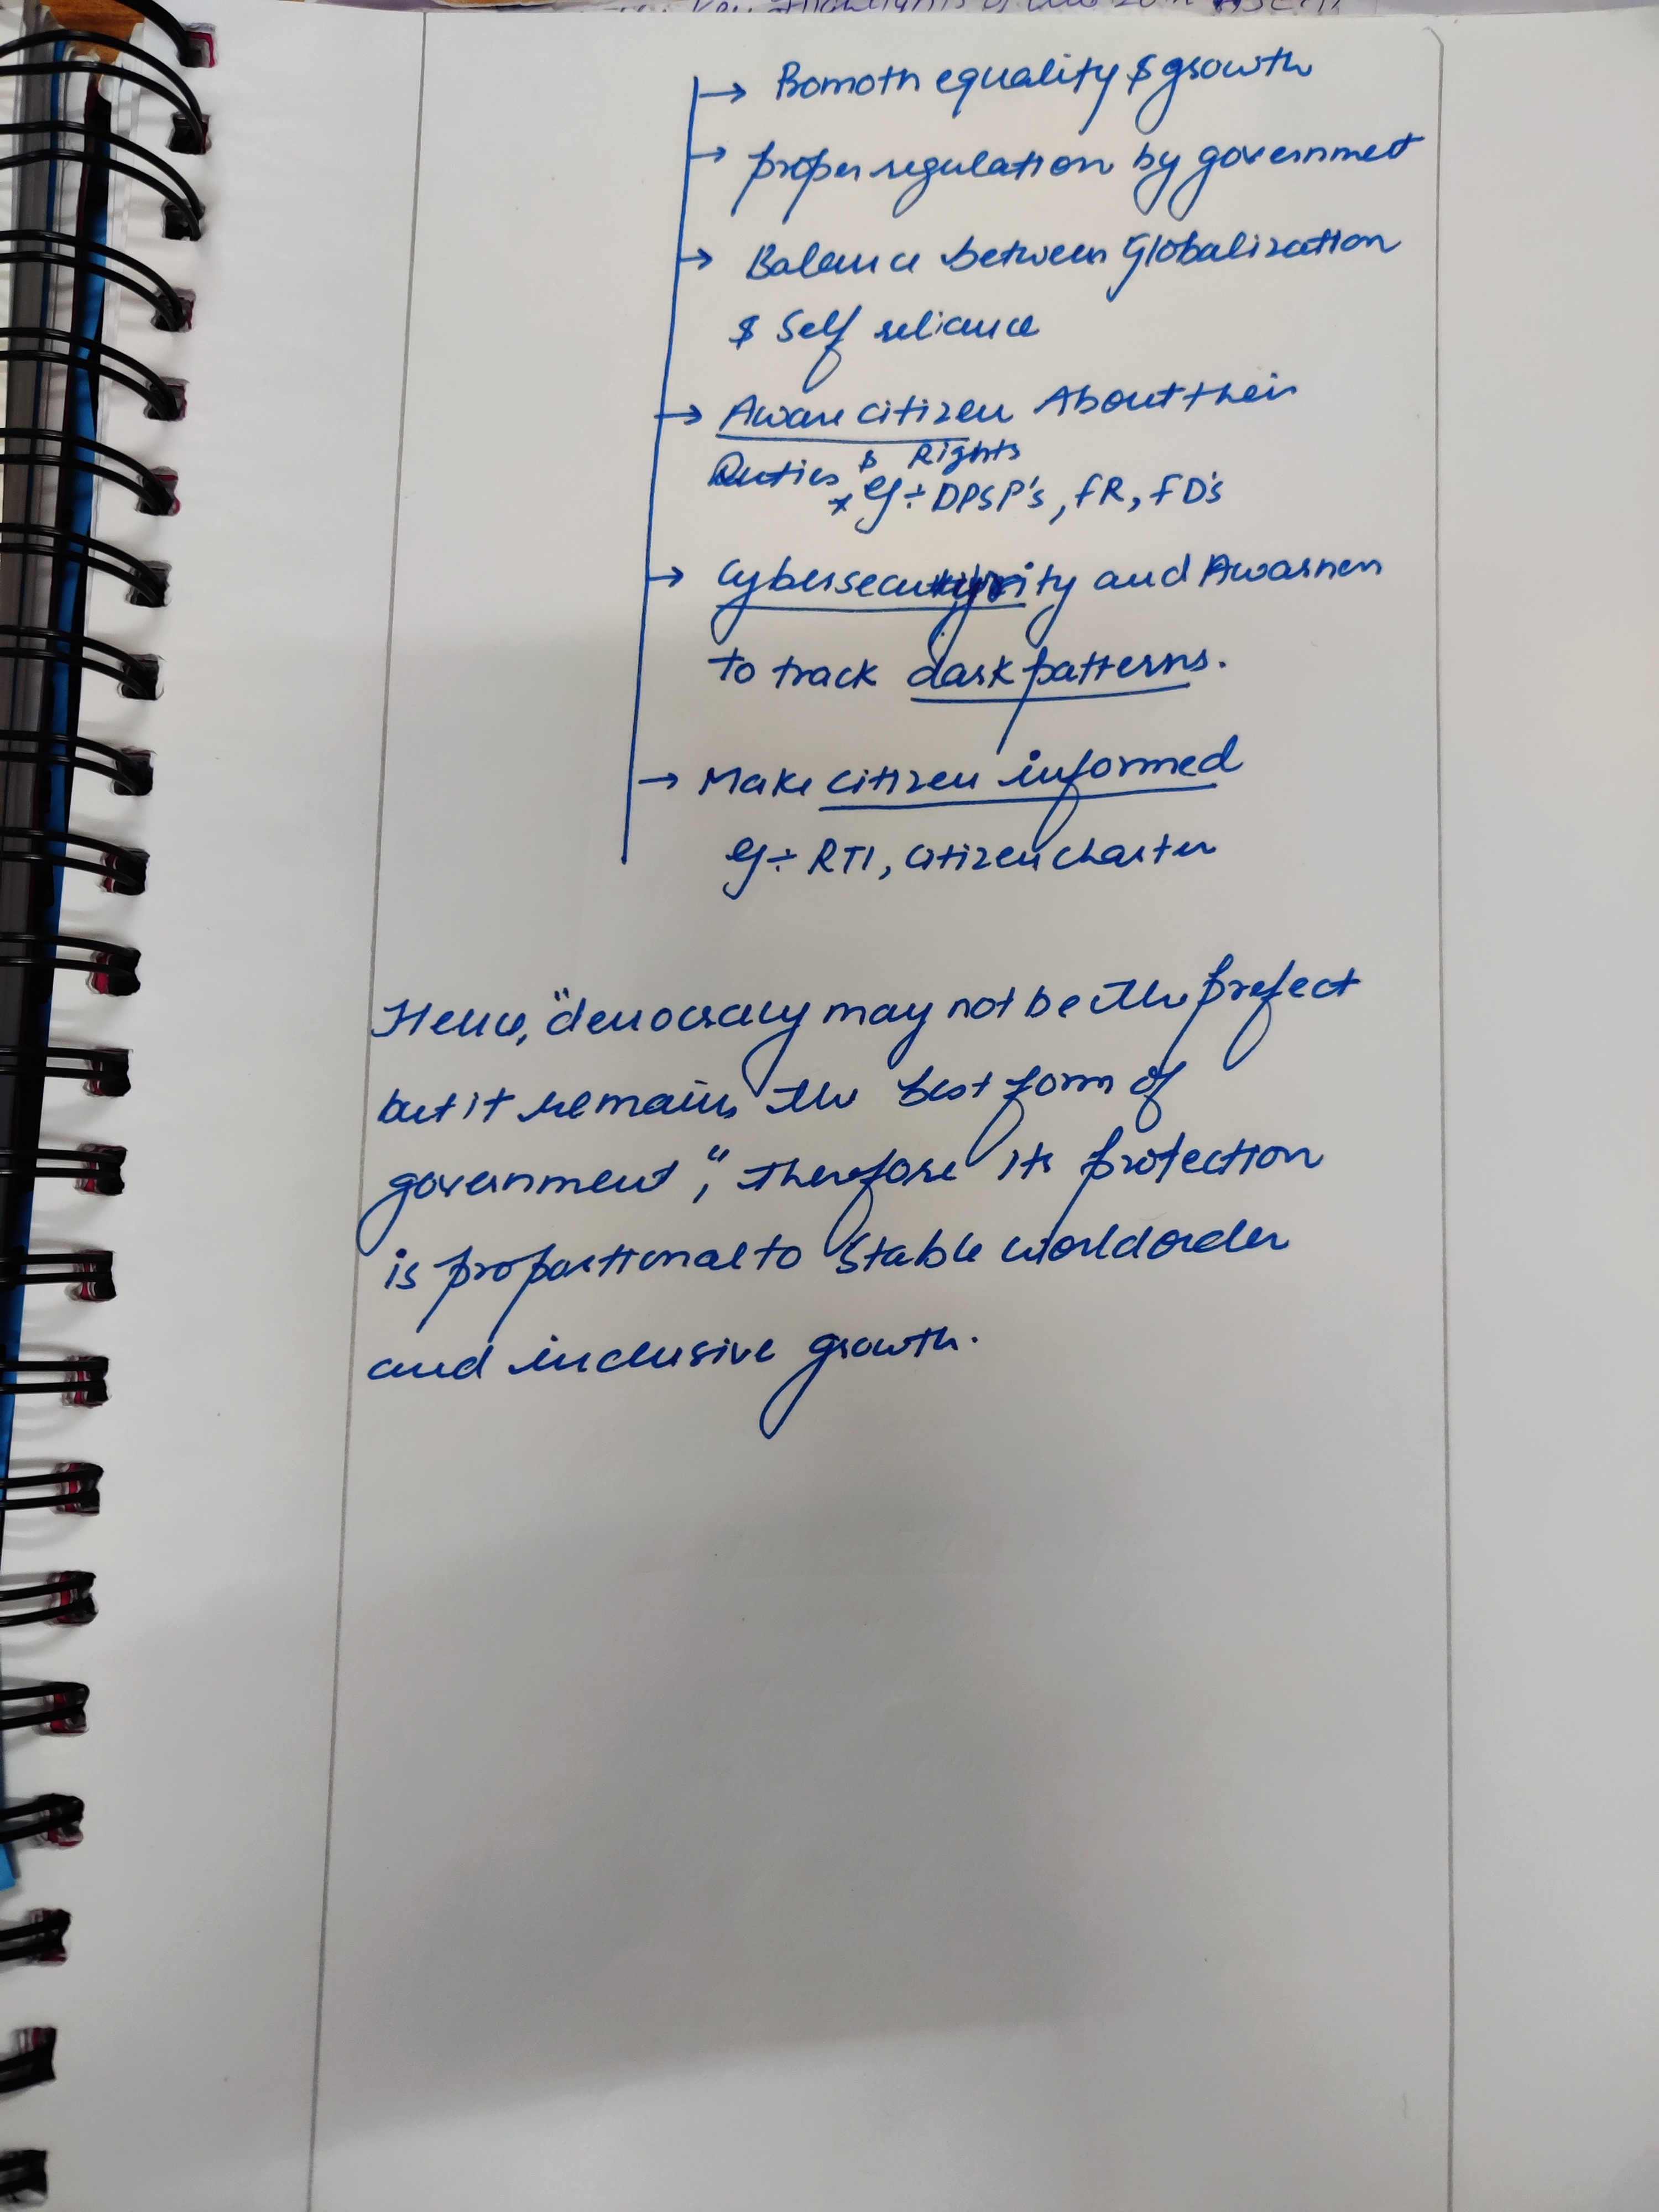 → Promoth equality & growth
→ proper regulation by governmet
→ Balance between Globalization
& Self reliance
→ Aware citizen About their
Duties & Rights
* eg ÷ DPSP's, FR, FD's
→ Cybersecurity and Awarnen
to track dark patterns.
→ Make citizen informed
eg ÷ RTI, citizen charter
Hence, "democracy may not be the prefect
but it remains the best form of
government", therefore its protection
is proportional to stable world order
and inclusive growth.